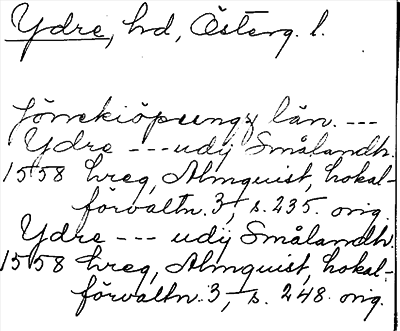 Ydre, hd, Österg. l.
Jönekiöpungz län. ---
Ydre --- udij Smålandh.
1558 hreg, Almquist, Lokal-
förvaltn. 3, s. 235. orig.
Ydre --- udij Smålandh.
1558 hreg, Almquist, Lokal-
förvaltn. 3, s. 248. orig.